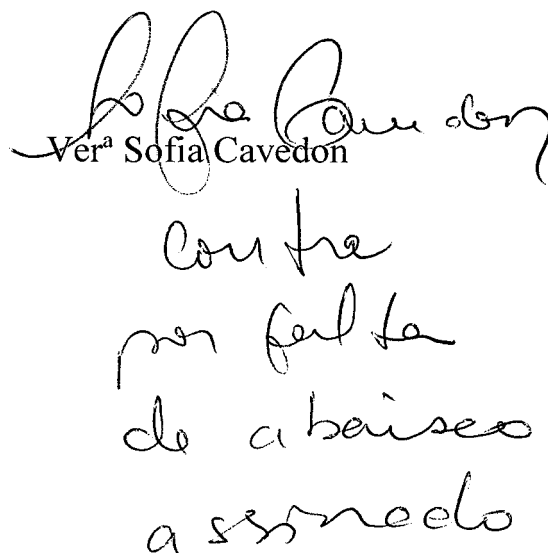 Sofia Cavedon
Verª Sofia Cavedon
contra
por falta
de abaixo
assinado